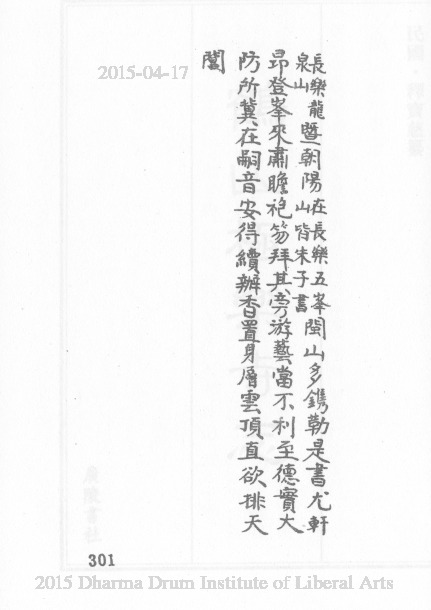 長樂泉山龍曁朝陽在長樂五峯山皆朱子書閩山多鐫勒是書尤軒
昂登峯來肅瞻袍笏拜其旁游藝當不利至德實大
防所冀在嗣音安得續瓣香置身層雲頂直欲排天
閶
2015-04-17
301
2015 Dharma Drum Institute of Liberal Arts